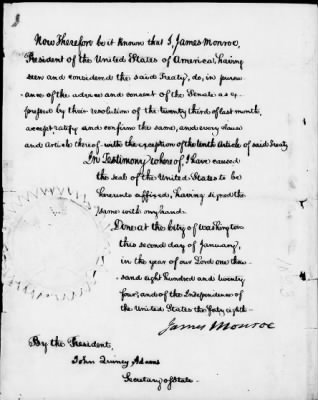 Now Therefore be it Known that I, James Monroe,
President of the United States of America, having
seen and considered the said Treaty, do, in pursu-
ance of the advice and consent of the Senate as ex-
pressed by their resolution of the twenty third of last month,
accept ratify and confirm the same, and every clause
and Article thereof with the exception of the tenth Article of said Treaty
In Testimony whereof, I have caused
the seal of the United States to be
hereunto affixed, having signed the
same with my hand.
Done at the City of Washington
this second day of January,
in the year of our Lord one thou-
sand eight Hundred and twenty
four, and of the Independence of
the United States the forty eighth.
James Monroe
By the President,
John Quincy Adams
Secretary of State.